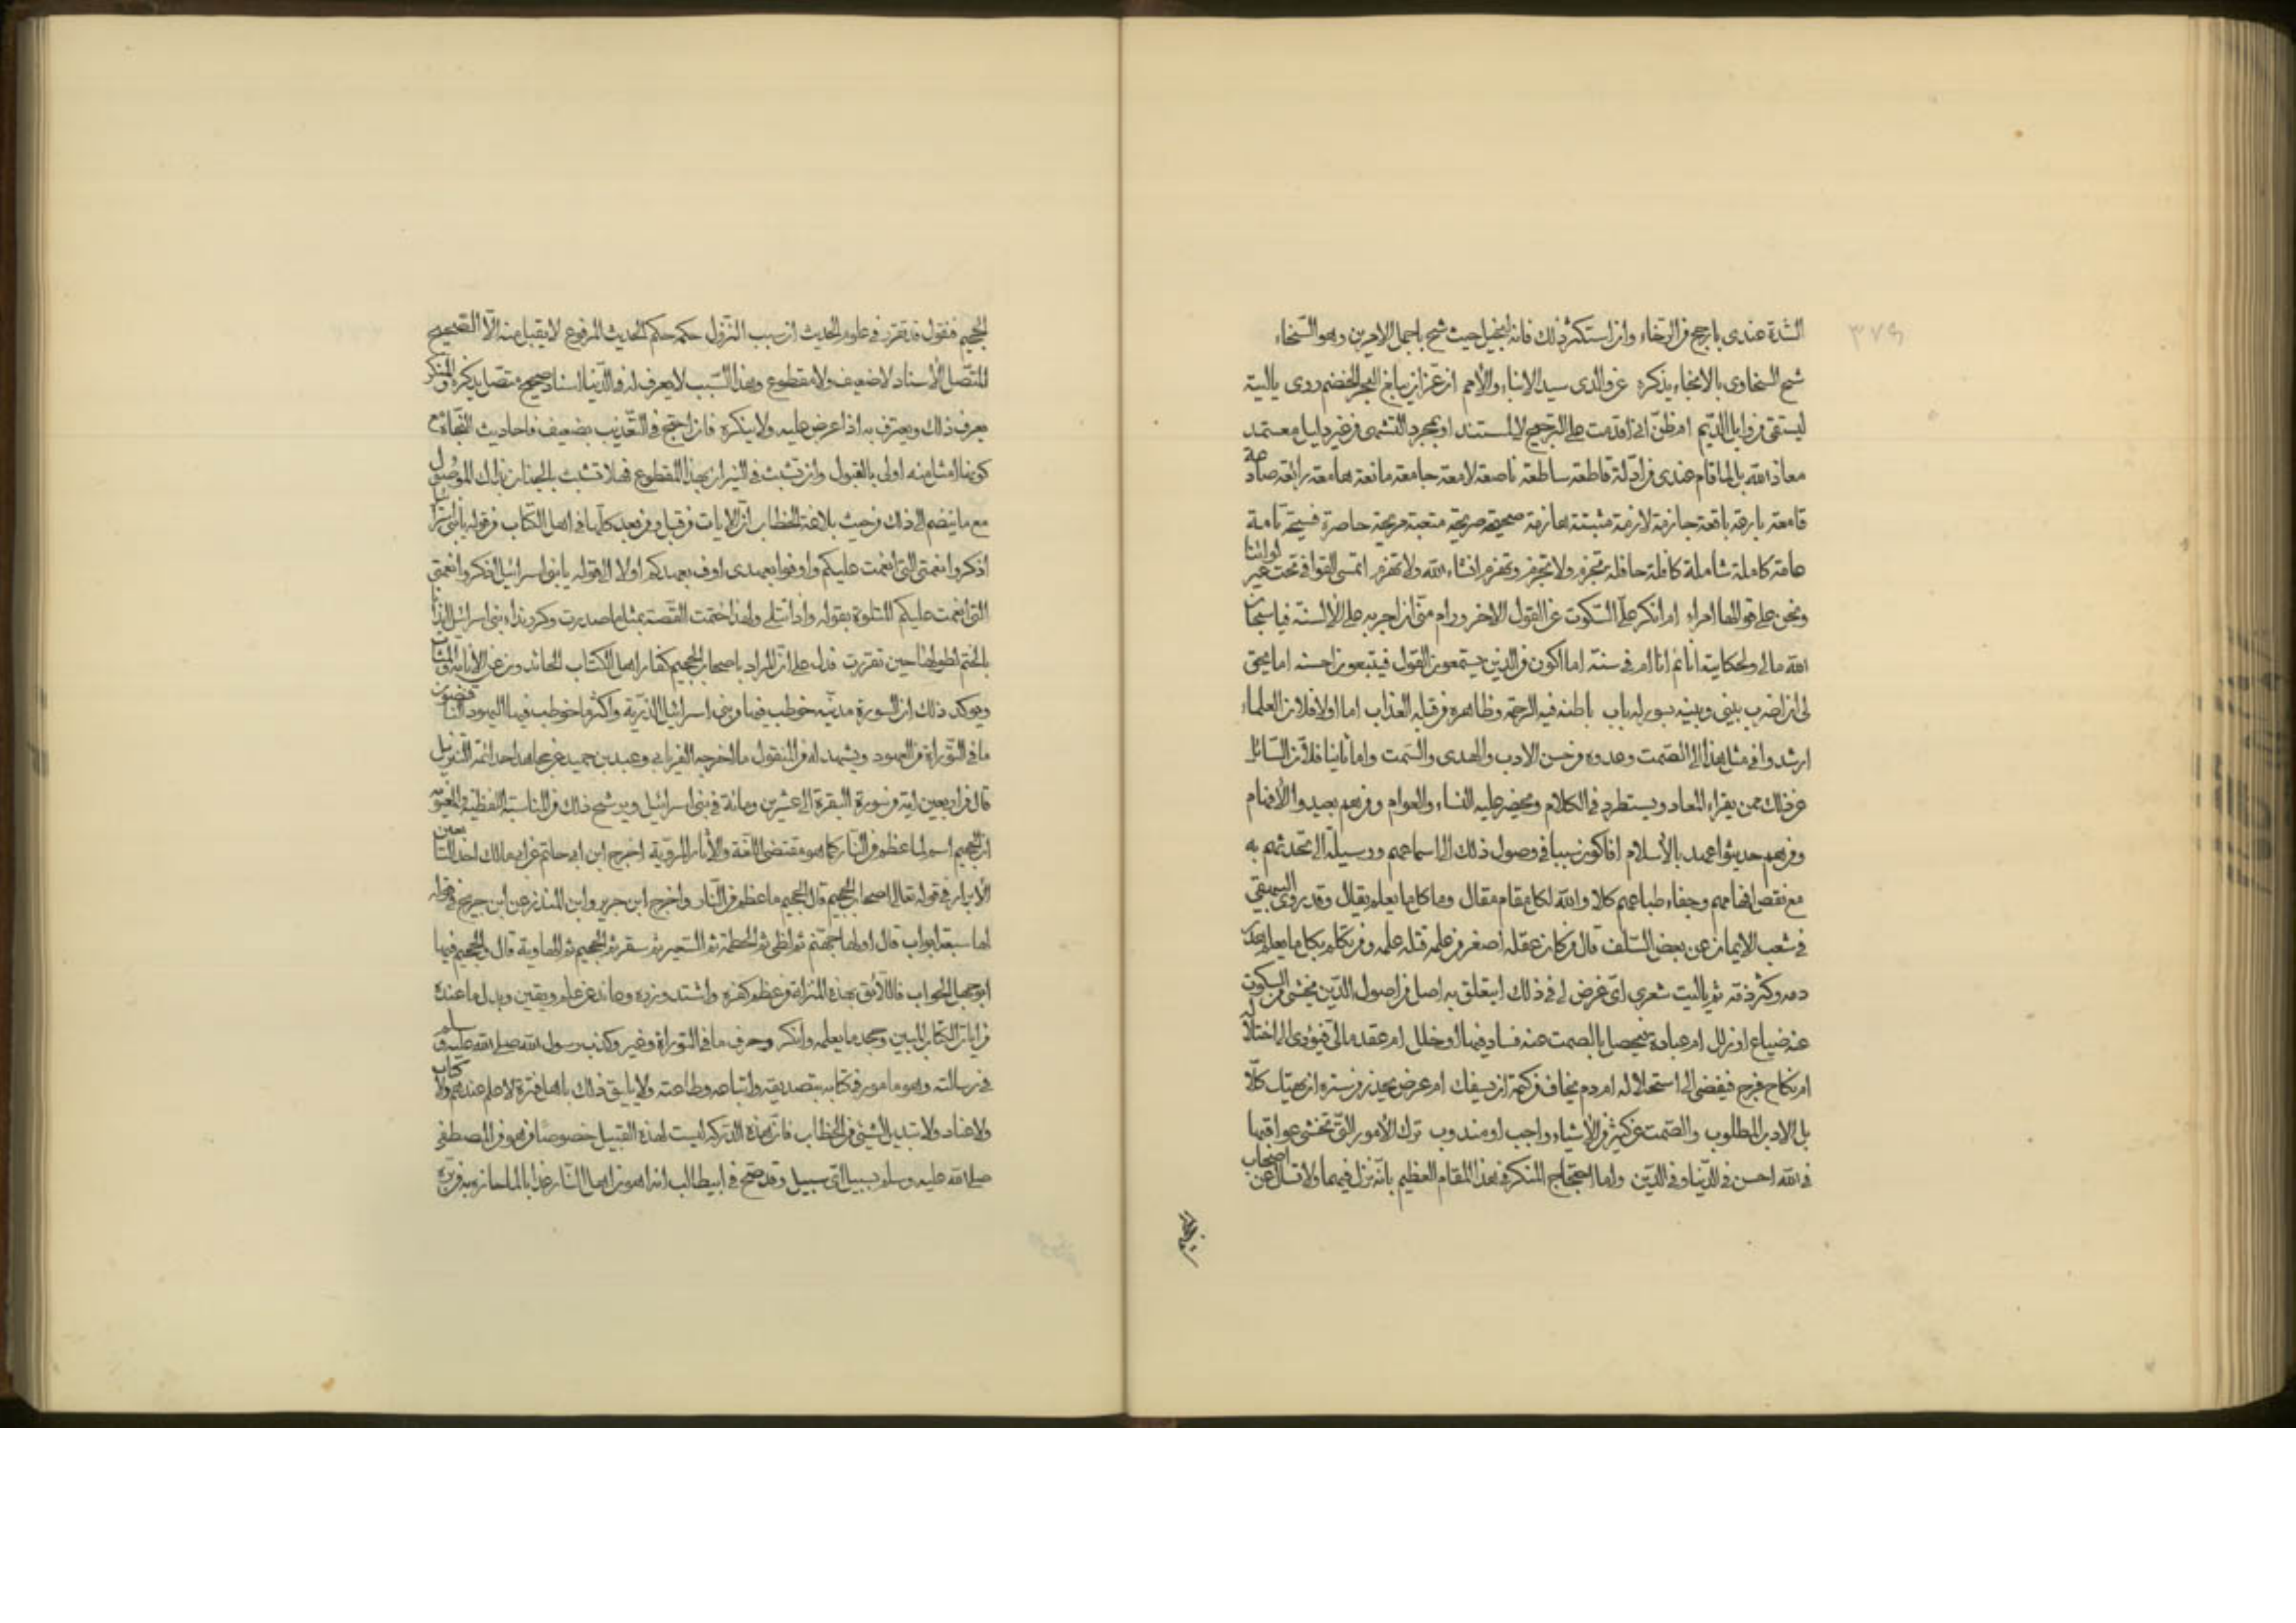 ٣٧٩
الشدة عندى بارجح من الرخاء وان استكثر ذلك فانه لبخيل حيث شح باجمل الامرين وهو السخاء
شح السخاوى بالانجاء يذكره عن والدى سيد الانباء والأمم ان عز ان يباغ البحر الخضم روى ياليته
ليستقى من وابل الديم ام ظن انى اقدمت على الترجيح لا لمستند او بمجرد التشهى من غير دليل معتمد
معاذ الله بل لما قام عندى من ادلة قاطعة ساطعة ناصعة لامعة جامعة مانعة هامعة رائعة صادعة
قامعة بارعة باقعة جازمة لازمة مثبتة عازمة صحيحة صريحة متعبة مريحة حاصرة فسيحة تامة
عامة كاملة شاملة كافلة حافلة تجزم ولا تجزم وتهزم انشاء الله ولا تهزم اتمسى القوافى تحت غير لوائنا
ونحن على قوالها امراء ام انكر على السكوت عن القول الاخر ورام منى ان اجريه على الألسنة فيا سبحان
الله مالى ولحكايته انائم انا ام فى سنة اما اكون من الذين يستمعون القول فيتبعون احسنه اما يحق
لى ان اضرب بينى وبينه بسور له باب باطنه فيه الرحمة وظاهره من قبله العذاب اما اولا فلان العلماء
ارشدوا فى مثل هذا الى الصمت وعدوه من حسن الادب والهدى والسمت واما ثانيا فلان السائل
عن ذلك ممن يقراء المعاد ويستطرد فى الكلام ويحضر عليه النساء والعوام ومن هم بعيدوا الأفهام
ومن هم حديثوا عهد بالأسلام افاكون سببا فى وصول ذلك الى اسماعهم ووسيلة الى تحدثهم به
مع نقص افهامهم وجفاء طباعهم كلا والله لكل مقام مقال وما كل ما يعلم يقال وقد روى البيهقى
فى شعب الايمان عن بعض السلف قال من كان عقله اصغر من علمه قتله علمه ومن تكلم بكل ما يعلم هدر
دمه وكثر ذمه ثم ياليت شعرى اى غرض لى فى ذلك ايتعلق به اصل من اصول الدين يخشى من السكوت
عنه ضياع او زلل ام عبادة يحصل بالصمت عنه فساد فيها او خلل ام عقد مالى فيؤدى الى اختلاله
ام نكاح فرج فيفضى الى استحلاله ام دم يخاف من كتمه ان يسفك ام عرض يحذر من ستره ان يهتك كلا
بل الادب المطلوب والصمت عن كثير من الأشياء واجب او مندوب ترك الأمور التى تخشى عواقبها
فى الله احسن فى الدنيا وفى الدين واما احتجاج المنكر فى هذا المقام العظيم بانه نزل فيهما ولا تسال عن اصحاب
الجحيم
الجحيم فنقول قد تقرر فى علوم الحديث ان سبب النزول حكمه حكم الحديث المرفوع لا يقبل منه الا الصحيح
المتصل الأسناد لا ضعيف ولا مقطوع وهذا السبب لا يعرف له فى الدنيا اسناد صحيح متصل يذكره والمنكر
يعرف ذلك ويعترف به اذا عرض عليه ولا ينكره فان احتج فى التعذيب بضعيف فاحاديث النجاة مع
كونها امثل منه اولى بالقبول وان تشبث فى النيران بهذا المقطوع فهلا تشبث بالجنان بذلك الموصول
مع ما ينضم الى ذلك من حيث بلاغة الخطاب ان الايات من قبل ومن بعد كلها فى اهل الكتاب من قوله يا بنى اسرائيل
اذكروا نعمتى التى انعمت عليكم واوفوا بعهدى اوف بعهدكم اولا الى قوله يا بنى اسرائيل اذكروا نعمتى
التى انعمت عليكم المتلوة بقوله واذ ابتلى ولهذا ختمت القصة بمثل ما صدرت وكرر نداء بنى اسرائيل ايذانا
بالختم لطولها حين تقررت فدل على ان المراد باصحاب الجحيم كفار اهل الكتاب الحائدون عن الأنابة والمتاب
ويوكد ذلك ان السورة مدنية خوطب فيها بنى اسرائيل الذرية واكثر ما خوطب فيها اليهود الناقضون
ما فى التوراة من العهود ويشهد له من المنقول ما اخرجه الفريابى وعبد بن حميد عن مجاهد احد ائمة التنزيل
قال من اربعين اية من سورة البقرة الى عشرين ومائة فى بنى اسرائيل ويرشح ذلك من المناسبة اللفظية والمعنوية
ان الجحيم اسم لما عظم من النار كما هو مقتضى اللغة والأثار المروية اخرج ابن ابى حاتم عن ابى مالك احد التابعين
الأبرار فى قوله تعالى اصحاب الجحيم قال الجحيم ما عظم من النار واخرج ابن جرير وابن المنذر عن ابن جريج فى قوله
لها سبعة ابواب قال اولها جهنم ثم لظى ثم الحطمة ثم السعير ثم سقر ثم الجحيم ثم الهاوية قال والجحيم فيها
ابو جهل الجواب فاللائق بهذه المنزلة من عظم كفره واشتد وزره وعاند عن علم ويقين وبدل ما عنده
من ايات الكتاب المبين وجحد ما يعلمه وانكر وحرف ما فى التوراة وغير وكذب رسول الله صلى الله عليه وسلم
فى رسالته وهو مامور فى كتابه بتصديقه واتباعه وطاعته ولا يليق ذلك باهل فترة لا علم عندهم ولا كتاب
ولا عناد ولا تبديل لشىء من الخطاب فان هذه التركة ليست لهذه القبيل خصوصا من هو من المصطفى
صلى الله عليه وسلم بسبيل اى سبيل وقد صح فى ابى طالب انه اهون اهل النار عذابا لما حازه به من بره